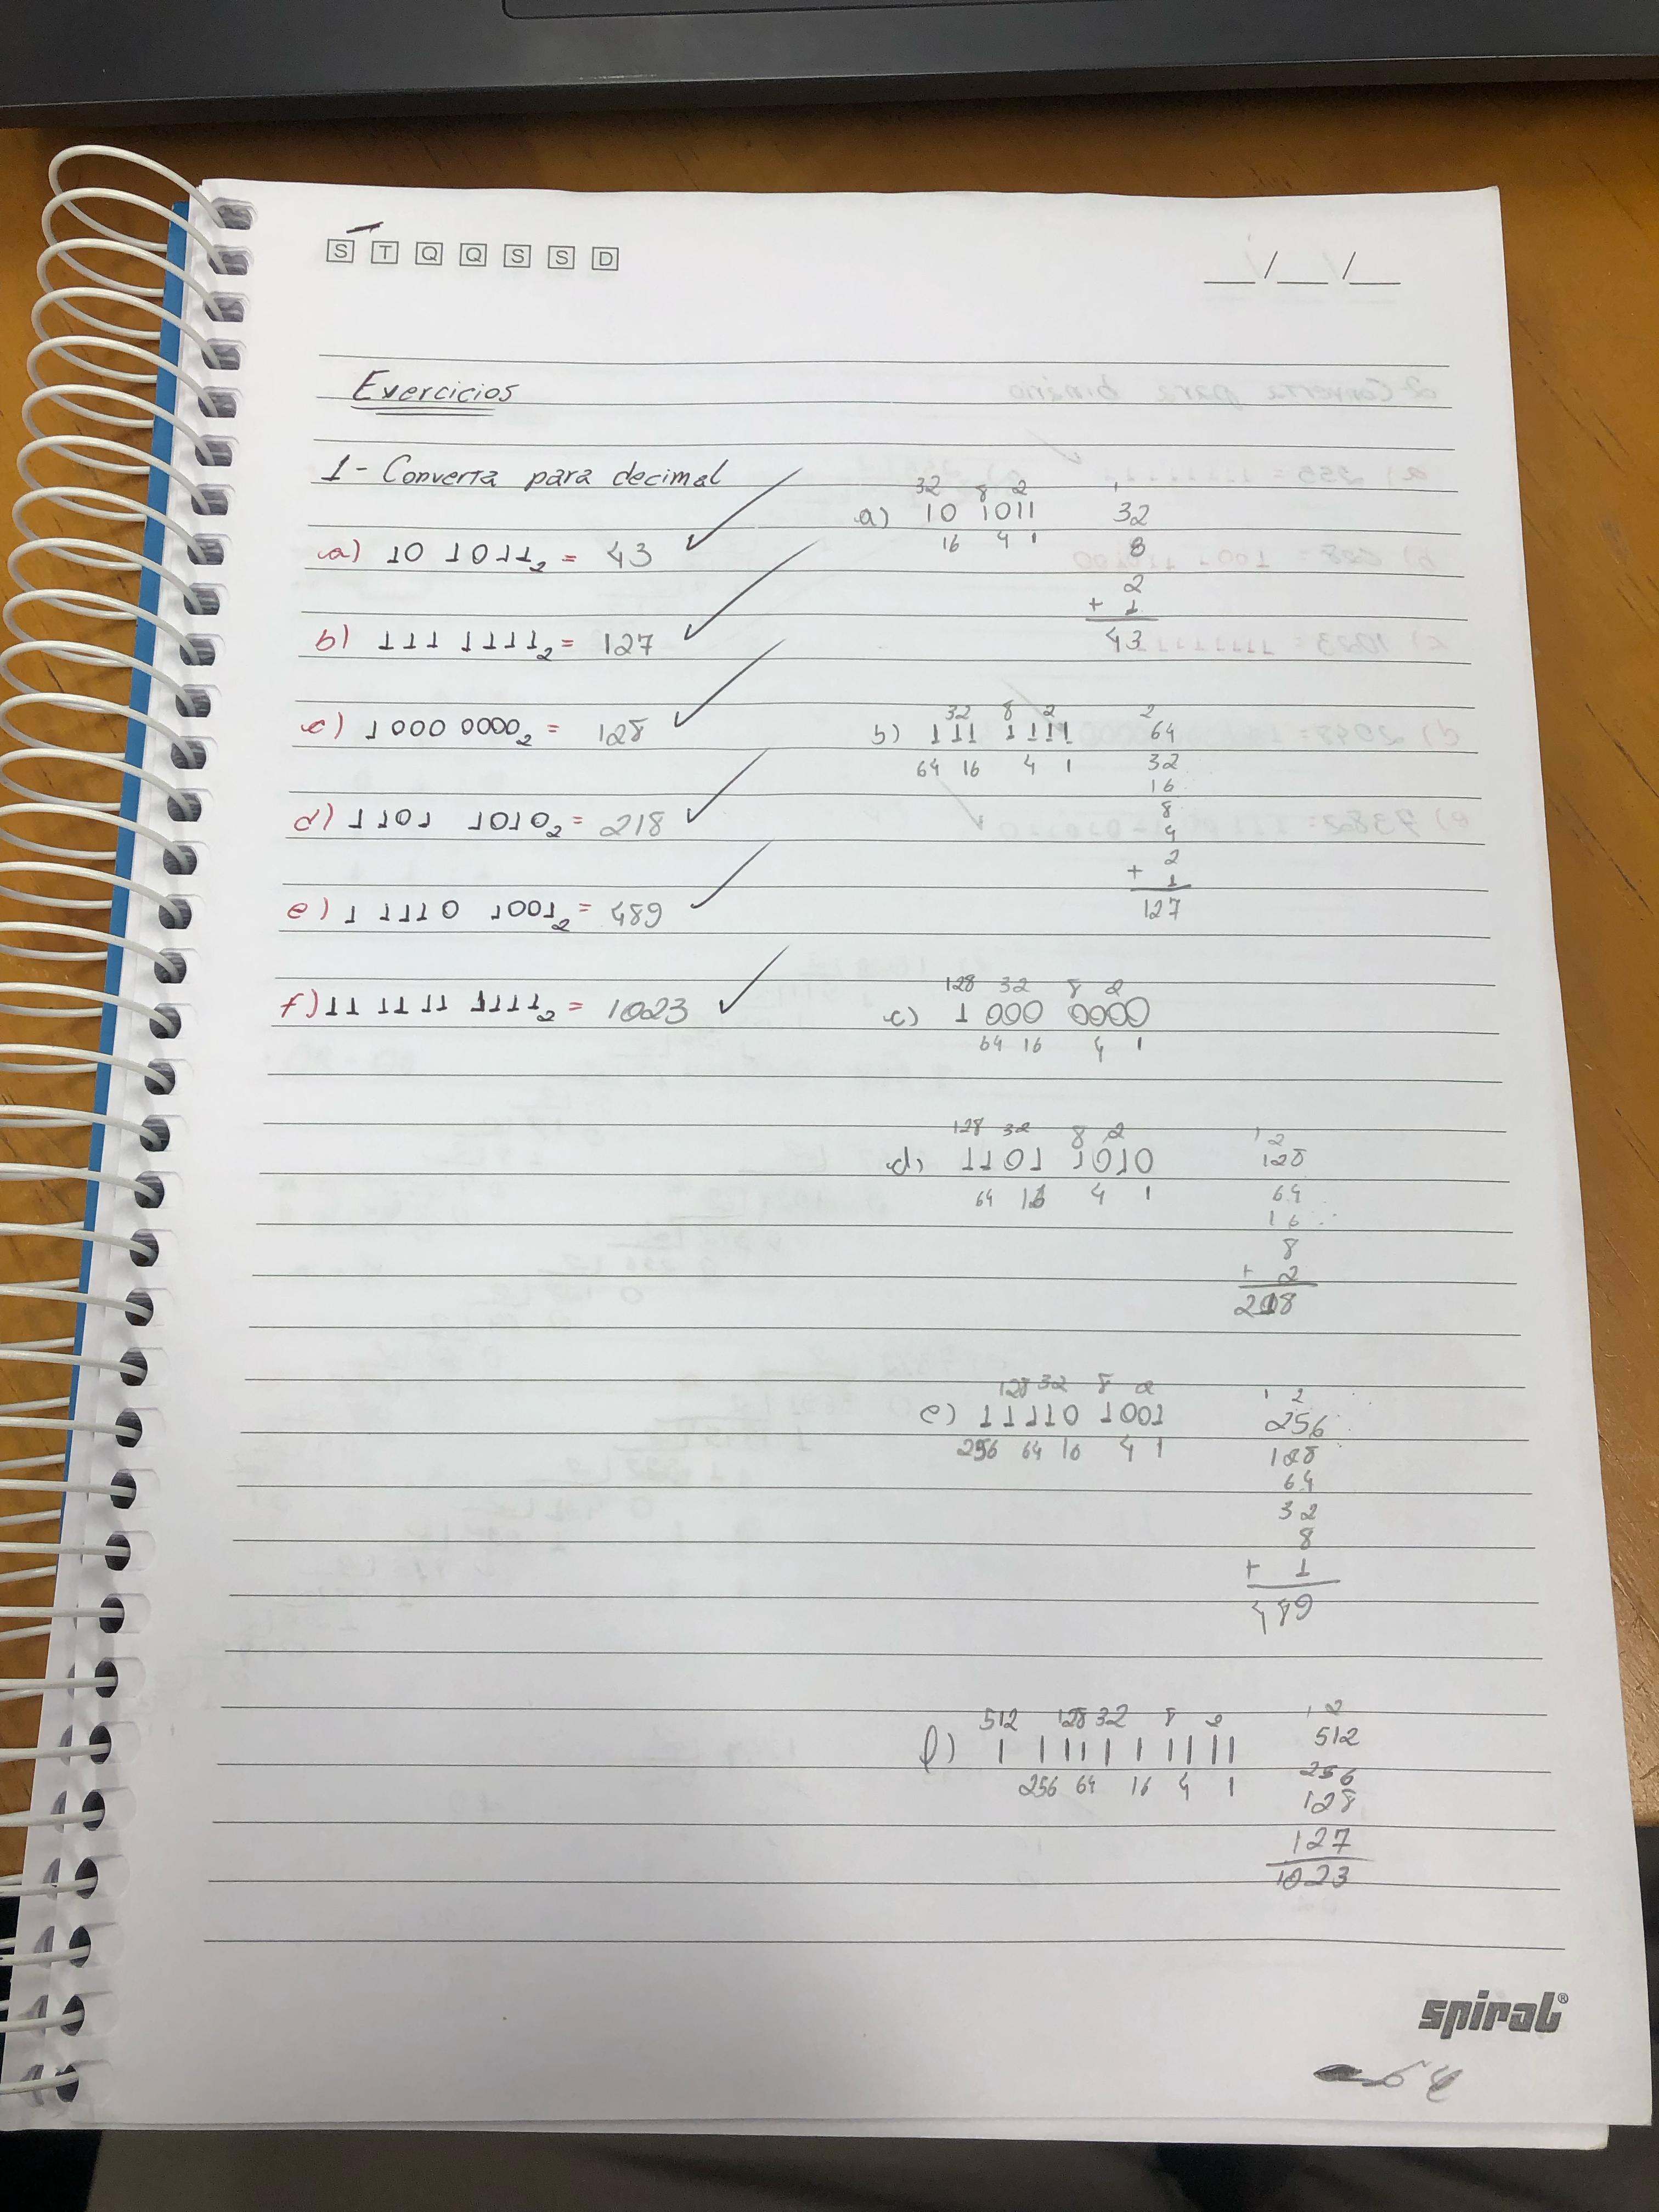 S T Q Q S S D
__/__/__
Exercicios
1- Converta para decimal
a) 10 1011₂ = 43
b) 111 1111₂ = 127
c) 1000 0000₂ = 128
d) 1101 1010₂ = 218
e) 1 1110 1001₂ = 489
f) 11 1111 1111₂ = 1023
32 8 2
a) 10 1011
16 4 1
1
32
8
2
+ 1
43
32 8 2
b) 111 1111
64 16 4 1
2
64
32
16
8
4
2
+ 1
127
128 32 8 2
c) 1 000 0000
64 16 4 1
128 32 8 2
d) 1101 1010
64 16 4 1
1 2
128
64
16
8
+ 2
218
128 32 8 2
e) 11110 1001
256 64 16 4 1
1 2
256
128
64
32
8
+ 1
489
512 128 32 8 2
f) 1 1 1 1 1 1 1 1 1 1
256 64 16 4 1
1 2
512
256
128
127
1023
spiral®